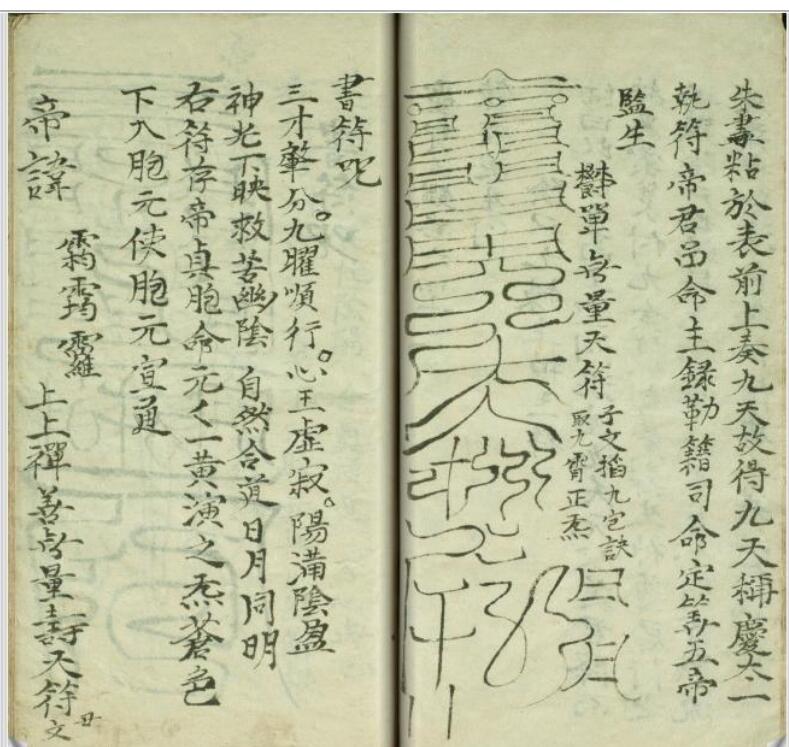 朱畫粘於表前上奏九天故得九天稱慶太一
執符帝君品命主録勒籍司命定筭五帝
監生
欝單无量天符
子文掐九宫訣
取九霄正炁
書符呪
三才肇分。九曜順行。心王虚寂。陽満陰盈
神光下映救苦幽陰 自然合道日月同明
右符存帝真胞命元く一黄演之炁蒼色
下入胞元使胞元宣通
帝諱
上上禪善无量壽天符